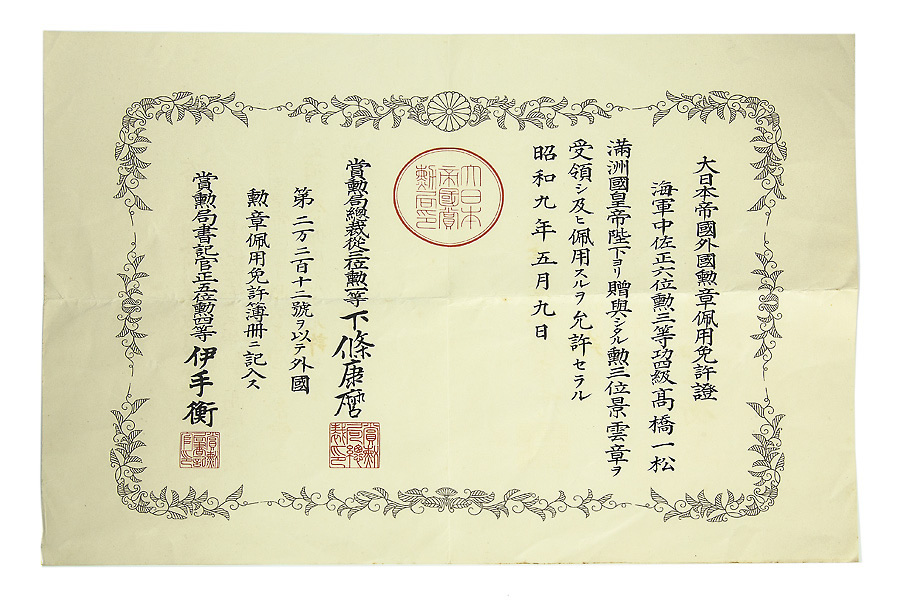 大日本帝國外國勲章佩用免許證
海軍中佐正六位勲三等功四級髙橋一松
滿洲國皇帝陛下ヨリ贈與シタル勲三位景雲章ヲ
受領シ及ヒ佩用スルヲ允許セラル
昭和九年五月九日
大日本
帝國賞
勲局印
賞勲局總裁從三位勲一等下條康麿
賞勲
局總
裁印
第二万二百十二號ヲ以テ外國
勲章佩用免許簿册ニ記入ス
賞勲局書記官正五位勲四等伊手衡